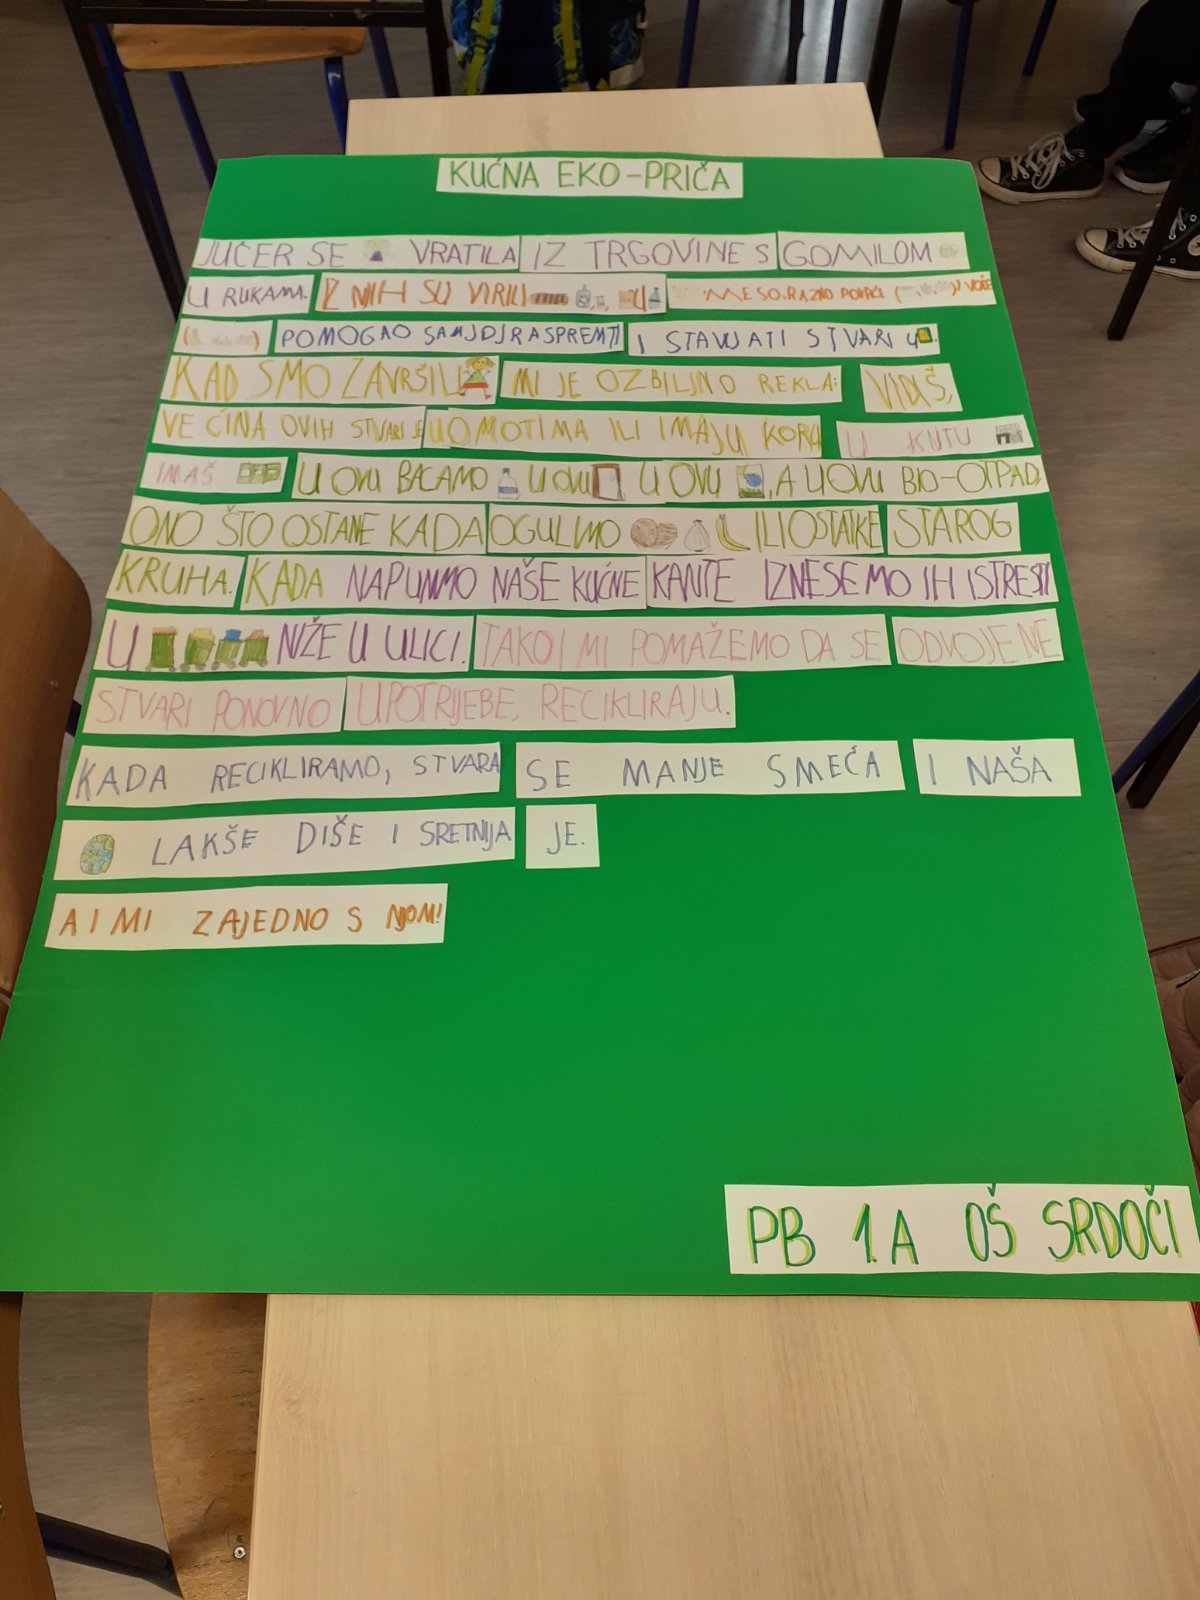 KUĆNA EKO-PRIČA
JUČER SE VRATILA IZ TRGOVINE S GOMILOM
U RUKAMA. IZ NJIH SU VIRILI MESO, RAZNO POVRĆE ( ) I VOĆE
( ) POMOGAO SAM JOJ RASPREMITI I STAVLJATI STVARI U .
KAD SMO ZAVRŠILI MI JE OZBILJNO REKLA: VIDIŠ,
VEĆINA OVIH STVARI JE U OMOTIMA ILI IMAJU KORU U KUTU
IMAŠ U OVU BACAMO U OVU U OVU , A U OVU BIO-OTPAD,
ONO ŠTO OSTANE KADA OGULIMO ILI OSTATKE STAROG
KRUHA. KADA NAPUNIMO NAŠE KUĆNE KANTE IZNESEMO IH ISTRESTI
U NIŽE U ULICI. TAKO I MI POMAŽEMO DA SE ODVOJENE
STVARI PONOVNO UPOTRIJEBE, RECIKLIRAJU.
KADA RECIKLIRAMO, STVARA SE MANJE SMEĆA I NAŠA
LAKŠE DIŠE I SRETNIJA JE.
A I MI ZAJEDNO S NJOM!
PB 1.A OŠ SRDOČI